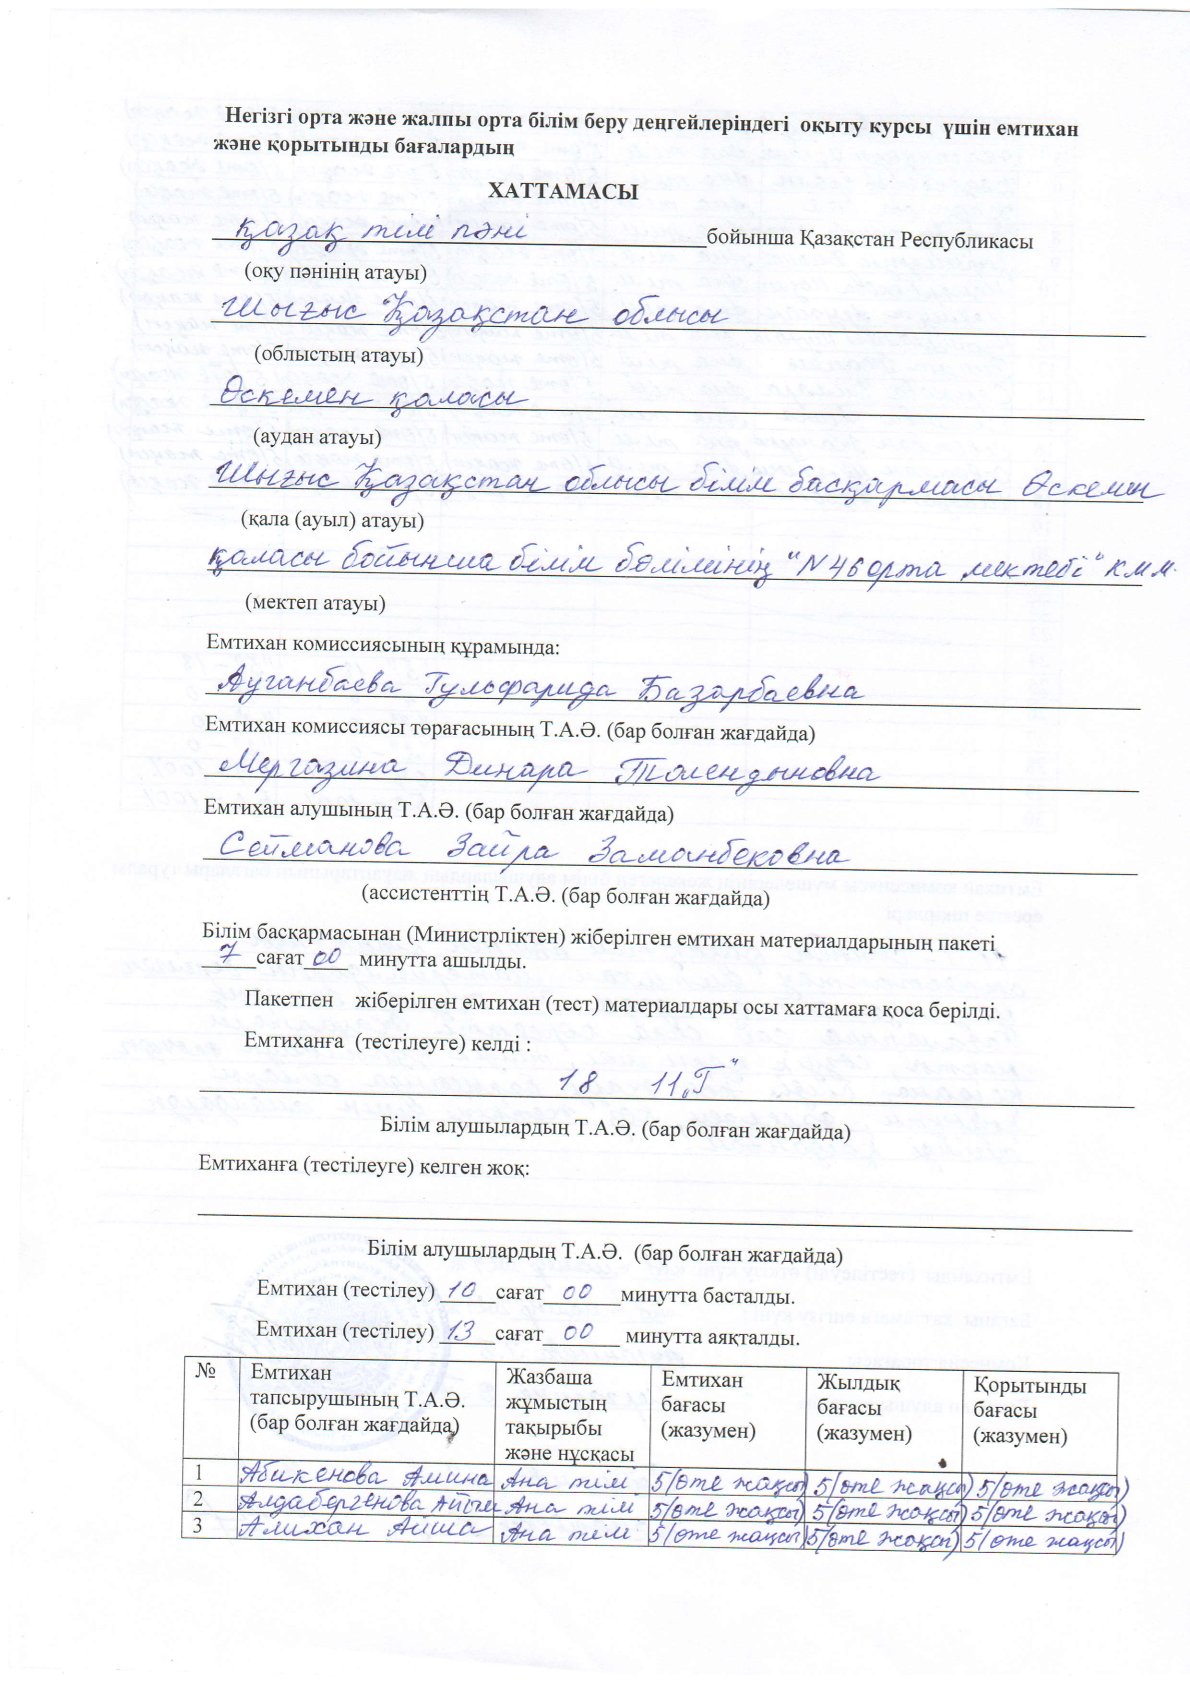 Негізгі орта және жалпы орта білім беру деңгейлеріндегі оқыту курсы үшін емтихан
және қорытынды бағалардың
ХАТТАМАСЫ
қазақ тілі пәні бойынша Қазақстан Республикасы
(оқу пәнінің атауы)
Шығыс Қазақстан облысы
(облыстың атауы)
Өскемен қаласы
(аудан атауы)
Шығыс Қазақстан облысы білім басқармасы Өскемен
(қала (ауыл) атауы)
қаласы бойынша білім бөлімінің "N 46 орта мектебі" КММ.
(мектеп атауы)
Емтихан комиссиясының құрамында:
Ауганбаева Гульфарида Базарбаевна
Емтихан комиссиясы төрағасының Т.А.Ә. (бар болған жағдайда)
Мергазина Динара Толендыновна
Емтихан алушының Т.А.Ә. (бар болған жағдайда)
Сейманова Зайра Заманбековна
(ассистенттің Т.А.Ә. (бар болған жағдайда)
Білім басқармасынан (Министрліктен) жіберілген емтихан материалдарының пакеті
7 сағат 00 минутта ашылды.
Пакетпен жіберілген емтихан (тест) материалдары осы хаттамаға қоса берілді.
Емтиханға (тестілеуге) келді :
18 11 „Г"
Білім алушылардың Т.А.Ә. (бар болған жағдайда)
Емтиханға (тестілеуге) келген жоқ:
Білім алушылардың Т.А.Ә. (бар болған жағдайда)
Емтихан (тестілеу) 10 сағат 00 минутта басталды.
Емтихан (тестілеу) 13 сағат 00 минутта аяқталды.
№ Емтихан тапсырушының Т.А.Ә. (бар болған жағдайда) Жазбаша жұмыстың тақырыбы және нұсқасы Емтихан бағасы (жазумен) Жылдық бағасы (жазумен) Қорытынды бағасы (жазумен)
1 Абикенова Амина Ана тілі 5 (өте жақсы) 5 (өте жақсы) 5 (өте жақсы)
2 Алдабергенова Айым Ана тілі 5 (өте жақсы) 5 (өте жақсы) 5 (өте жақсы)
3 Алихан Айша Ана тілі 5 (өте жақсы) 5 (өте жақсы) 5 (өте жақсы)